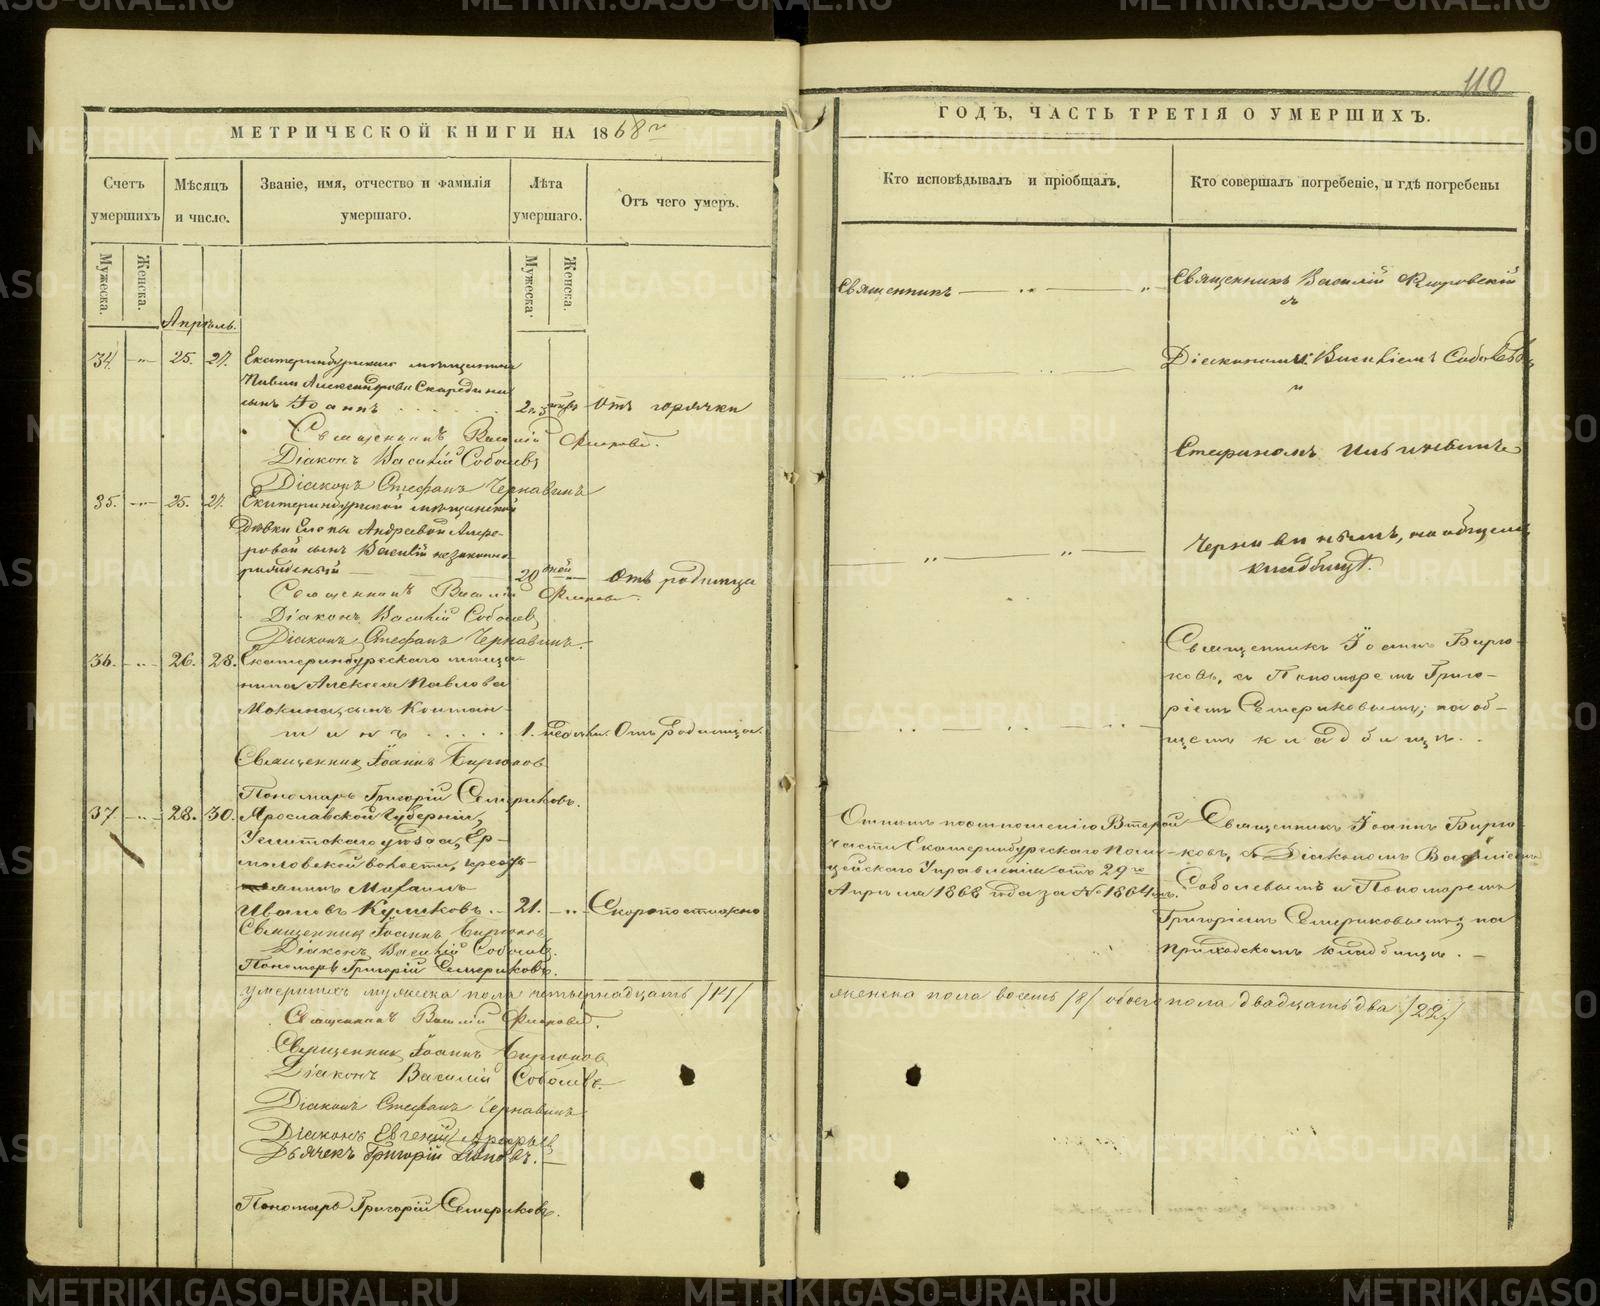 110
МЕТРИЧЕСКОЙ КНИГИ НА 1868 г
ГОДЪ, ЧАСТЬ ТРЕТІЯ О УМЕРШИХЪ.
Счетъ умершихъ
Мѣсяцъ и число.
Званіе, имя, отчество и фамилія умершаго.
Лѣта умершаго.
Отъ чего умеръ.
Кто исповѣдывалъ и пріобщалъ.
Кто совершалъ погребеніе, и гдѣ погребены
Мужеска.
Женска.
Мужеска.
Женска.
Апрѣль.
34. 25. 27.
Екатеринбургскаго мѣщанина
Павла Александрова
сынъ Іоаннъ
Отъ горячки
Священникъ Василій
Діаконъ Василій Соболевъ
Діаконъ Стефанъ Чернавинъ
35. 25. 27.
Екатеринбургской мѣщанской
дѣвки Елены Андреевой
ровой сынъ Василій незаконно-
рожденный
20 дней
Отъ родимца
Священникъ Василій
Діаконъ Василій Соболевъ
Діаконъ Стефанъ Чернавинъ.
36. 26. 28.
Екатеринбургскаго мѣща-
нина Алексея Павлова
Мокина, сынъ Констан-
тинъ
1. недѣли. Отъ родимца.
Священникъ Іоаннъ Бирюковъ
Пономарь Григорій Семериковъ.
37 28. 30.
Ярославской Губерніи,
уѣзда, Ер-
моловской волости, кресть-
янинъ Михаилъ
Ивановъ Куликовъ.
21.
Скоропостижно
Священникъ Іоаннъ Бирюковъ
Діаконъ Василій Соболевъ.
Пономарь Григорій Семериковъ.
умершихъ мужеска пола четырнадцать /14/
Священникъ Василій
Священникъ Іоаннъ Бирюковъ
Діаконъ Василій Соболевъ.
Діаконъ Стефанъ Чернавинъ
Діаконъ Евгеній
Дьячекъ Григорій Поповъ.
Пономарь Григорій Семериковъ.
Священникъ
Священникъ Василій
съ
Діакономъ Василіемъ Соболевымъ
и
Стефаномъ
Чернавинымъ, на общемъ
кладбищѣ.
Священникъ Іоаннъ Бирю-
ковъ, съ Пономаремъ Григо-
ріемъ Семериковымъ; на об-
щемъ кладбищѣ.
Отпѣтъ по отношенію Второй
части Екатеринбургскаго Поли-
цейскаго Управленія отъ 29 го
Апрѣля 1868 года за № 1864 мъ.
Священникъ Іоаннъ Бирю-
ковъ, съ Діакономъ Василіемъ
Соболевымъ и Пономаремъ
Григоріемъ Семериковымъ; на
приходскомъ кладбищѣ.
женска пола восемь /8/ обоего пола двадцать два /22/
METRIKI.GASO-URAL.RU